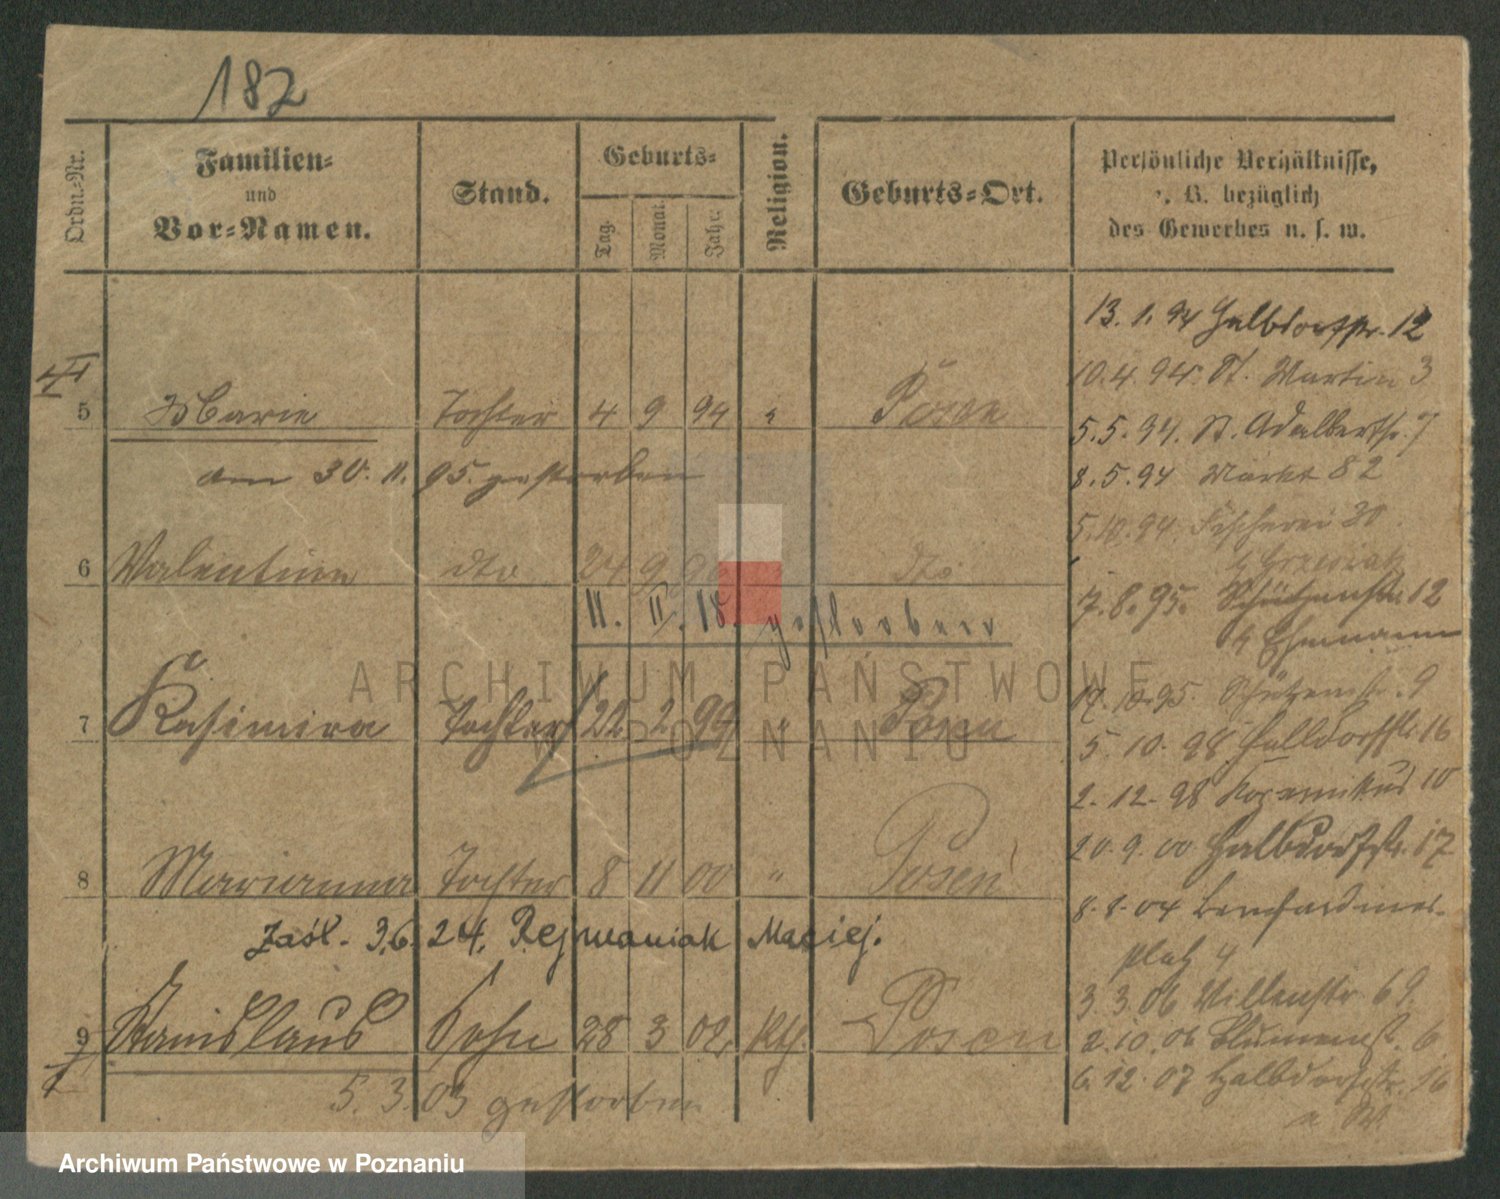 182
Ordn.-Nr.
Familien-
und
Vor-Namen.
Stand.
Geburts-
Tag.
Monat.
Jahr.
Religion.
Geburts-Ort.
Persönliche Verhältnisse,
z. B. bezüglich
des Gewerbes u. s. w.
13. 1. 94 Halbdorfstr. 12
10. 4. 94. St. Martin 3
5 Marie Tochter 4 9 94 " Posen
5. 5. 94. St. Adalbertstr. 7
am 30. 11. 95. gestorben
8. 5. 94 Markt 82
5. 10. 94. Fischerei 20
6 Valentine dto 24 9 96 dto
7. 8. 95. Schützenstr. 12
11. II. 18 gestorben
b Ehmann
17. 10. 95. Schützenstr. 9
7 Kasimira Tochter 22 2 99 " Posen
5. 10. 98 Halbdorfstr. 16
2. 12. 98 Kopernikus 10
20. 9. 00 Halbdorfstr. 17
8 Marianna Tochter 8 11 00 " Posen
8. 8. 04 Bernhardiner-
platz 4
Zaśl. 3.6. 24. Rejwaniak Maciej.
3. 3. 06 Villenstr 69.
9 Stanislaus Sohn 28 3 02. Kth. Posen
2. 10. 06 Blumenst. 6
6. 12. 07 Halbdorfstr. 16
5. 3. 03 gestorben
ARCHIWUM PAŃSTWOWE
W POZNANIU
Archiwum Państwowe w Poznaniu